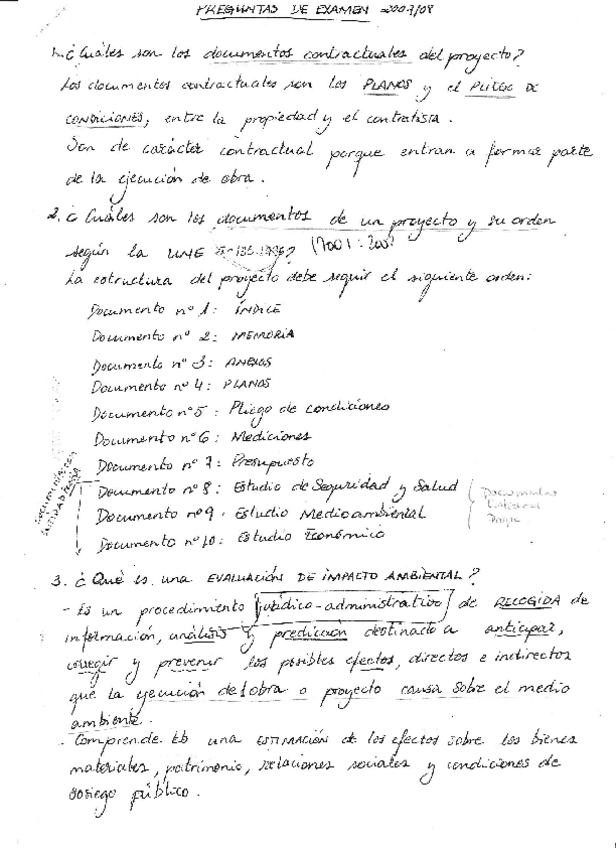 PREGUNTAS DE EXAMEN 2007/08
1. ¿Cuáles son los documentos contractuales del proyecto?
Los documentos contractuales son los PLANOS y el PLIEGO DE
CONDICIONES, entre la propiedad y el contratista.
Son de carácter contractual porque entran a formar parte
de la ejecución de obra.
2. ¿Cuáles son los documentos de un proyecto y su orden
según la UNE
La estructura del proyecto debe seguir el siguiente orden:
Documento nº 1: ÍNDICE
Documento nº 2: MEMORIA
Documento nº 3: ANEXOS
Documento nº 4: PLANOS
Documento nº 5: Pliego de condiciones
Documento nº 6: Mediciones
Documento nº 7: Presupuesto
Documento nº 8: Estudio de Seguridad y Salud
Documento nº 9: Estudio Medioambiental
Documento nº 10: Estudio Económico
3. ¿Qué es una EVALUACIÓN DE IMPACTO AMBIENTAL?
- Es un procedimiento jurídico-administrativo de RECOGIDA de
información, análisis y predicción destinado a anticipar,
corregir y prevenir los posibles efectos, directos e indirectos
que la ejecución de obra o proyecto causa sobre el medio
ambiente.
. Comprende una ESTIMACIÓN de los efectos sobre los bienes
materiales, patrimonio, relaciones sociales y condiciones de
sosiego público.